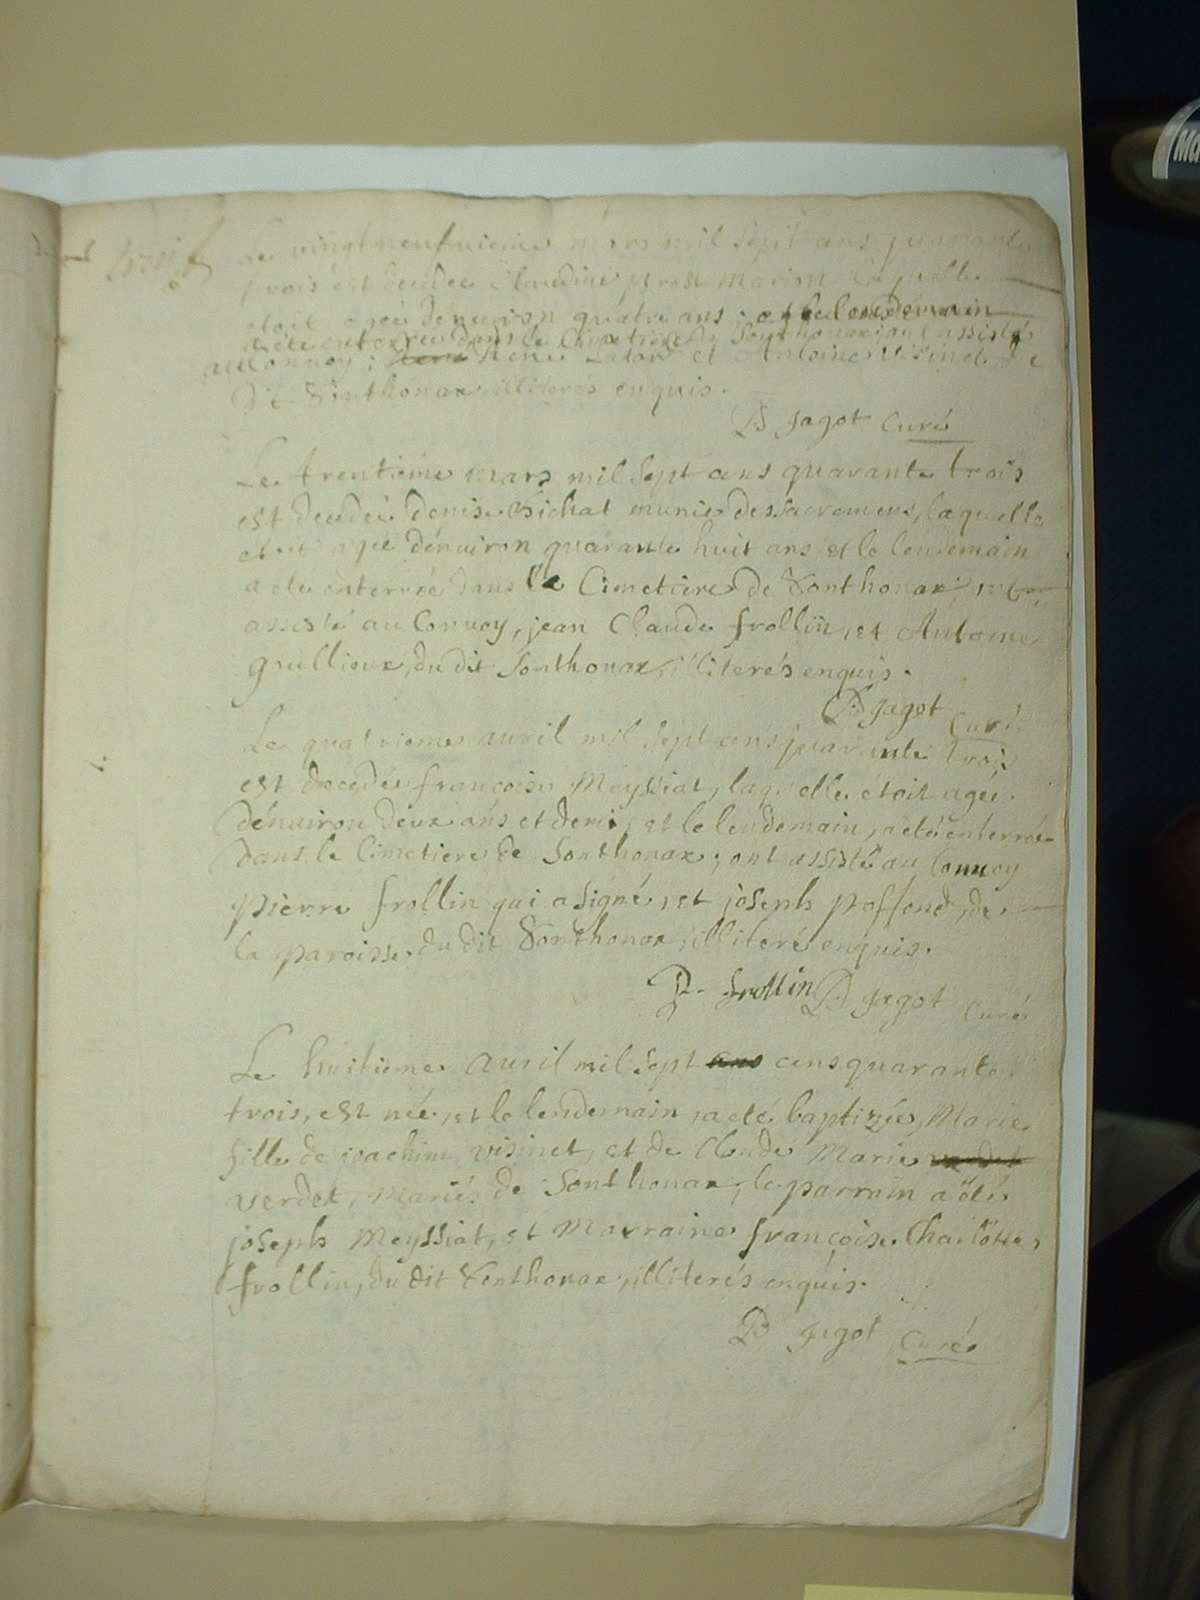 Le vingtneufvieme mars mil sept cens quarante
trois est decedee Claudine prost Marion laquelle
etoit agée dénuiron quatre ans, et le lendemain
a été enterrée dans le Cimetiere de Sonthonax; ont assistés
au Convoy; René et Antoine Visinet de
dit Sonthonax, illiterés enquis.
Jagot Curé
Le trentieme mars mil sept cens quarante trois
est decedée denise Bichat munie des sacremens, laquelle
etoit agée dénuiron quarante huit ans, et le lendemain
a ete enterrée dans le Cimetiere de Sonthonax; ont
assisté au Convoy, jean Claude frollin, et Antoine
grullieux, du dit Sonthonax, illiterés enquis.
Jagot Curé
Le quatrieme auril mil sept cens quarante trois
est decedée françoise Meyssiat, laquelle étoit agée
dénuiron deux ans et demi, et le lendemain, a été enterrée
dans le Cimetiere de Sonthonax; ont assisté au Convoy
pierre frollin qui a signé, et joseph poffond, de
la paroisse du dit Sonthonax, illiteré enquis.
P. frollin Jagot Curé
Le huitieme auril mil sept cens quarante
trois, est née, et le lendemain, a eté baptizée, Marie
fille de joachim visinet, et de Claude Marie
verdet, Mariés de Sonthonax, le parrain a été
joseph Meyssiat, et Marraine françoise Charlotte
frollin, du dit Sonthonax, illiterés enquis.
Jagot Curé
Ma